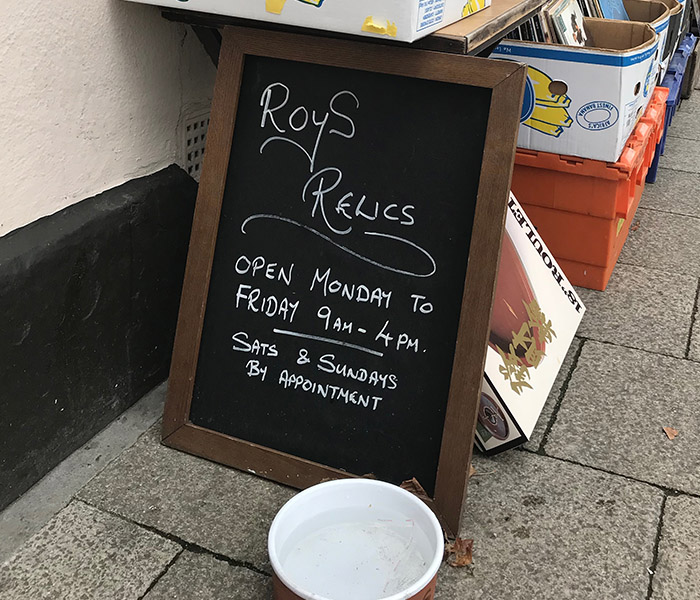 Roys
Relics
OPEN MONDAY TO
FRIDAY 9AM - 4PM.
SATS & SUNDAYS
BY APPOINTMENT
AFRICA'S
FINEST BANANA
18" ROULET